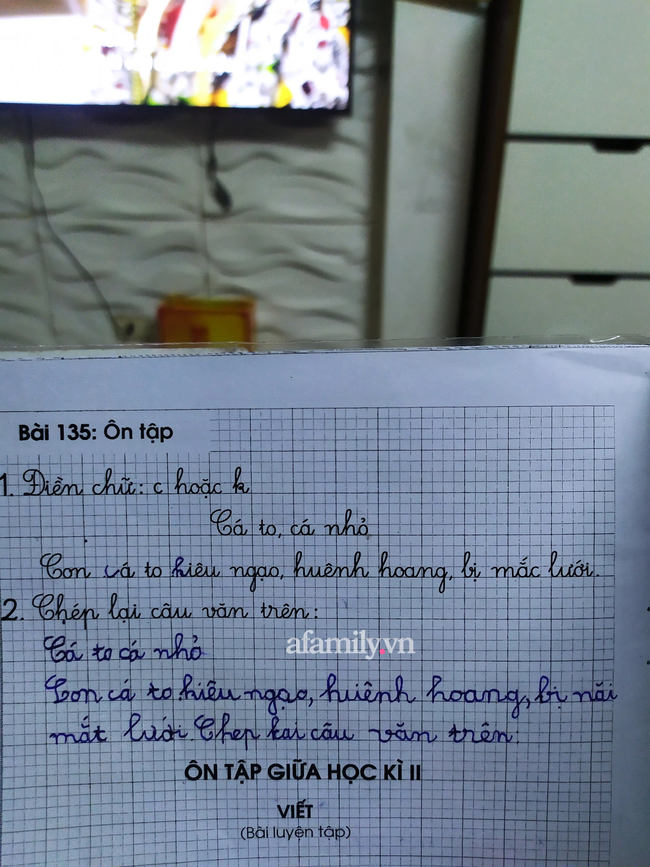 Bài 135: Ôn tập
1. Điền chữ: c hoặc k
Cá to, cá nhỏ
Con cá to kiêu ngạo, huênh hoang, bị mắc lưới.
2. Chép lại câu văn trên:
afamily.vn
Cá to cá nhỏ
Con cá to kiêu ngạo, huiênh hoang, bị năi
mắt lưới. Chep kai câu văn trên.
ÔN TẬP GIỮA HỌC KÌ II
VIẾT
(Bài luyện tập)